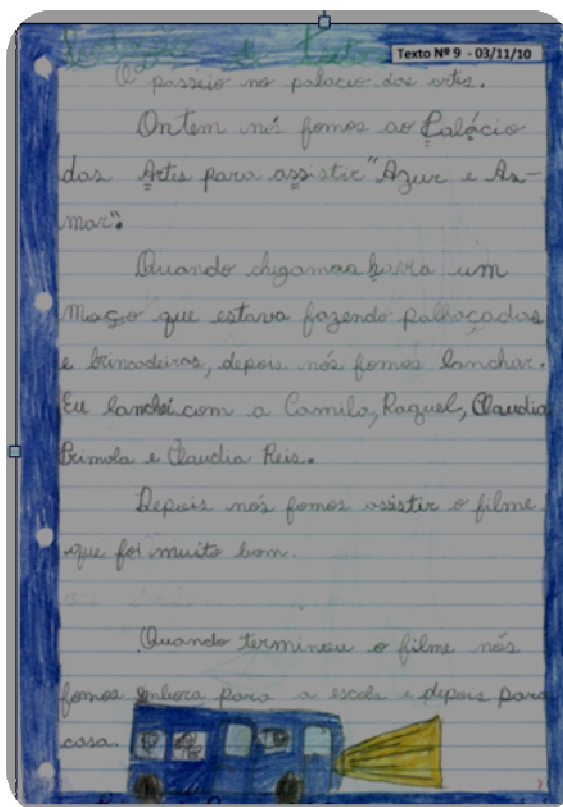 de texto
Texto Nº 9 - 03/11/10
O passeio no palacio das artes.
Ontem nós fomos ao Palácio
das Artes para assistir "Azur e As-
mar".
Quando chegamos havia um
moço que estava fazendo palhaçadas
e brincadeiras, depois nós fomos lanchar.
Eu lanchei com a Camila, Raquel, Claudia
Primola e Claudia Reis.
Depois nós fomos assistir o filme
que foi muito bom.
Quando terminou o filme nós
fomos embora para a escola e depois para
casa.